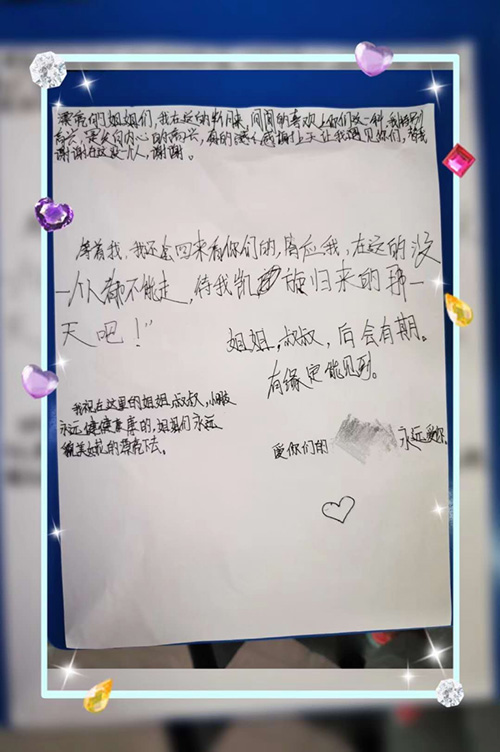 亲爱的姐姐们，我在这的时间里，间间的喜欢上你们这一种，我特别
高兴，是发自内心的高兴，真的感谢上天让我遇见你们，
谢谢在这里个人，谢谢。
等着我，我还会回来看你们的，答应我，在这的没
一个人都不能走，待我凯旋归来的那一
天吧！”
姐姐，叔叔，后会有期。
有缘定能见到。
我祝在这里的姐姐，叔叔，小朋友
永远健健康康的，姐姐们永远
美的漂亮下去。
爱你们的 永远爱你